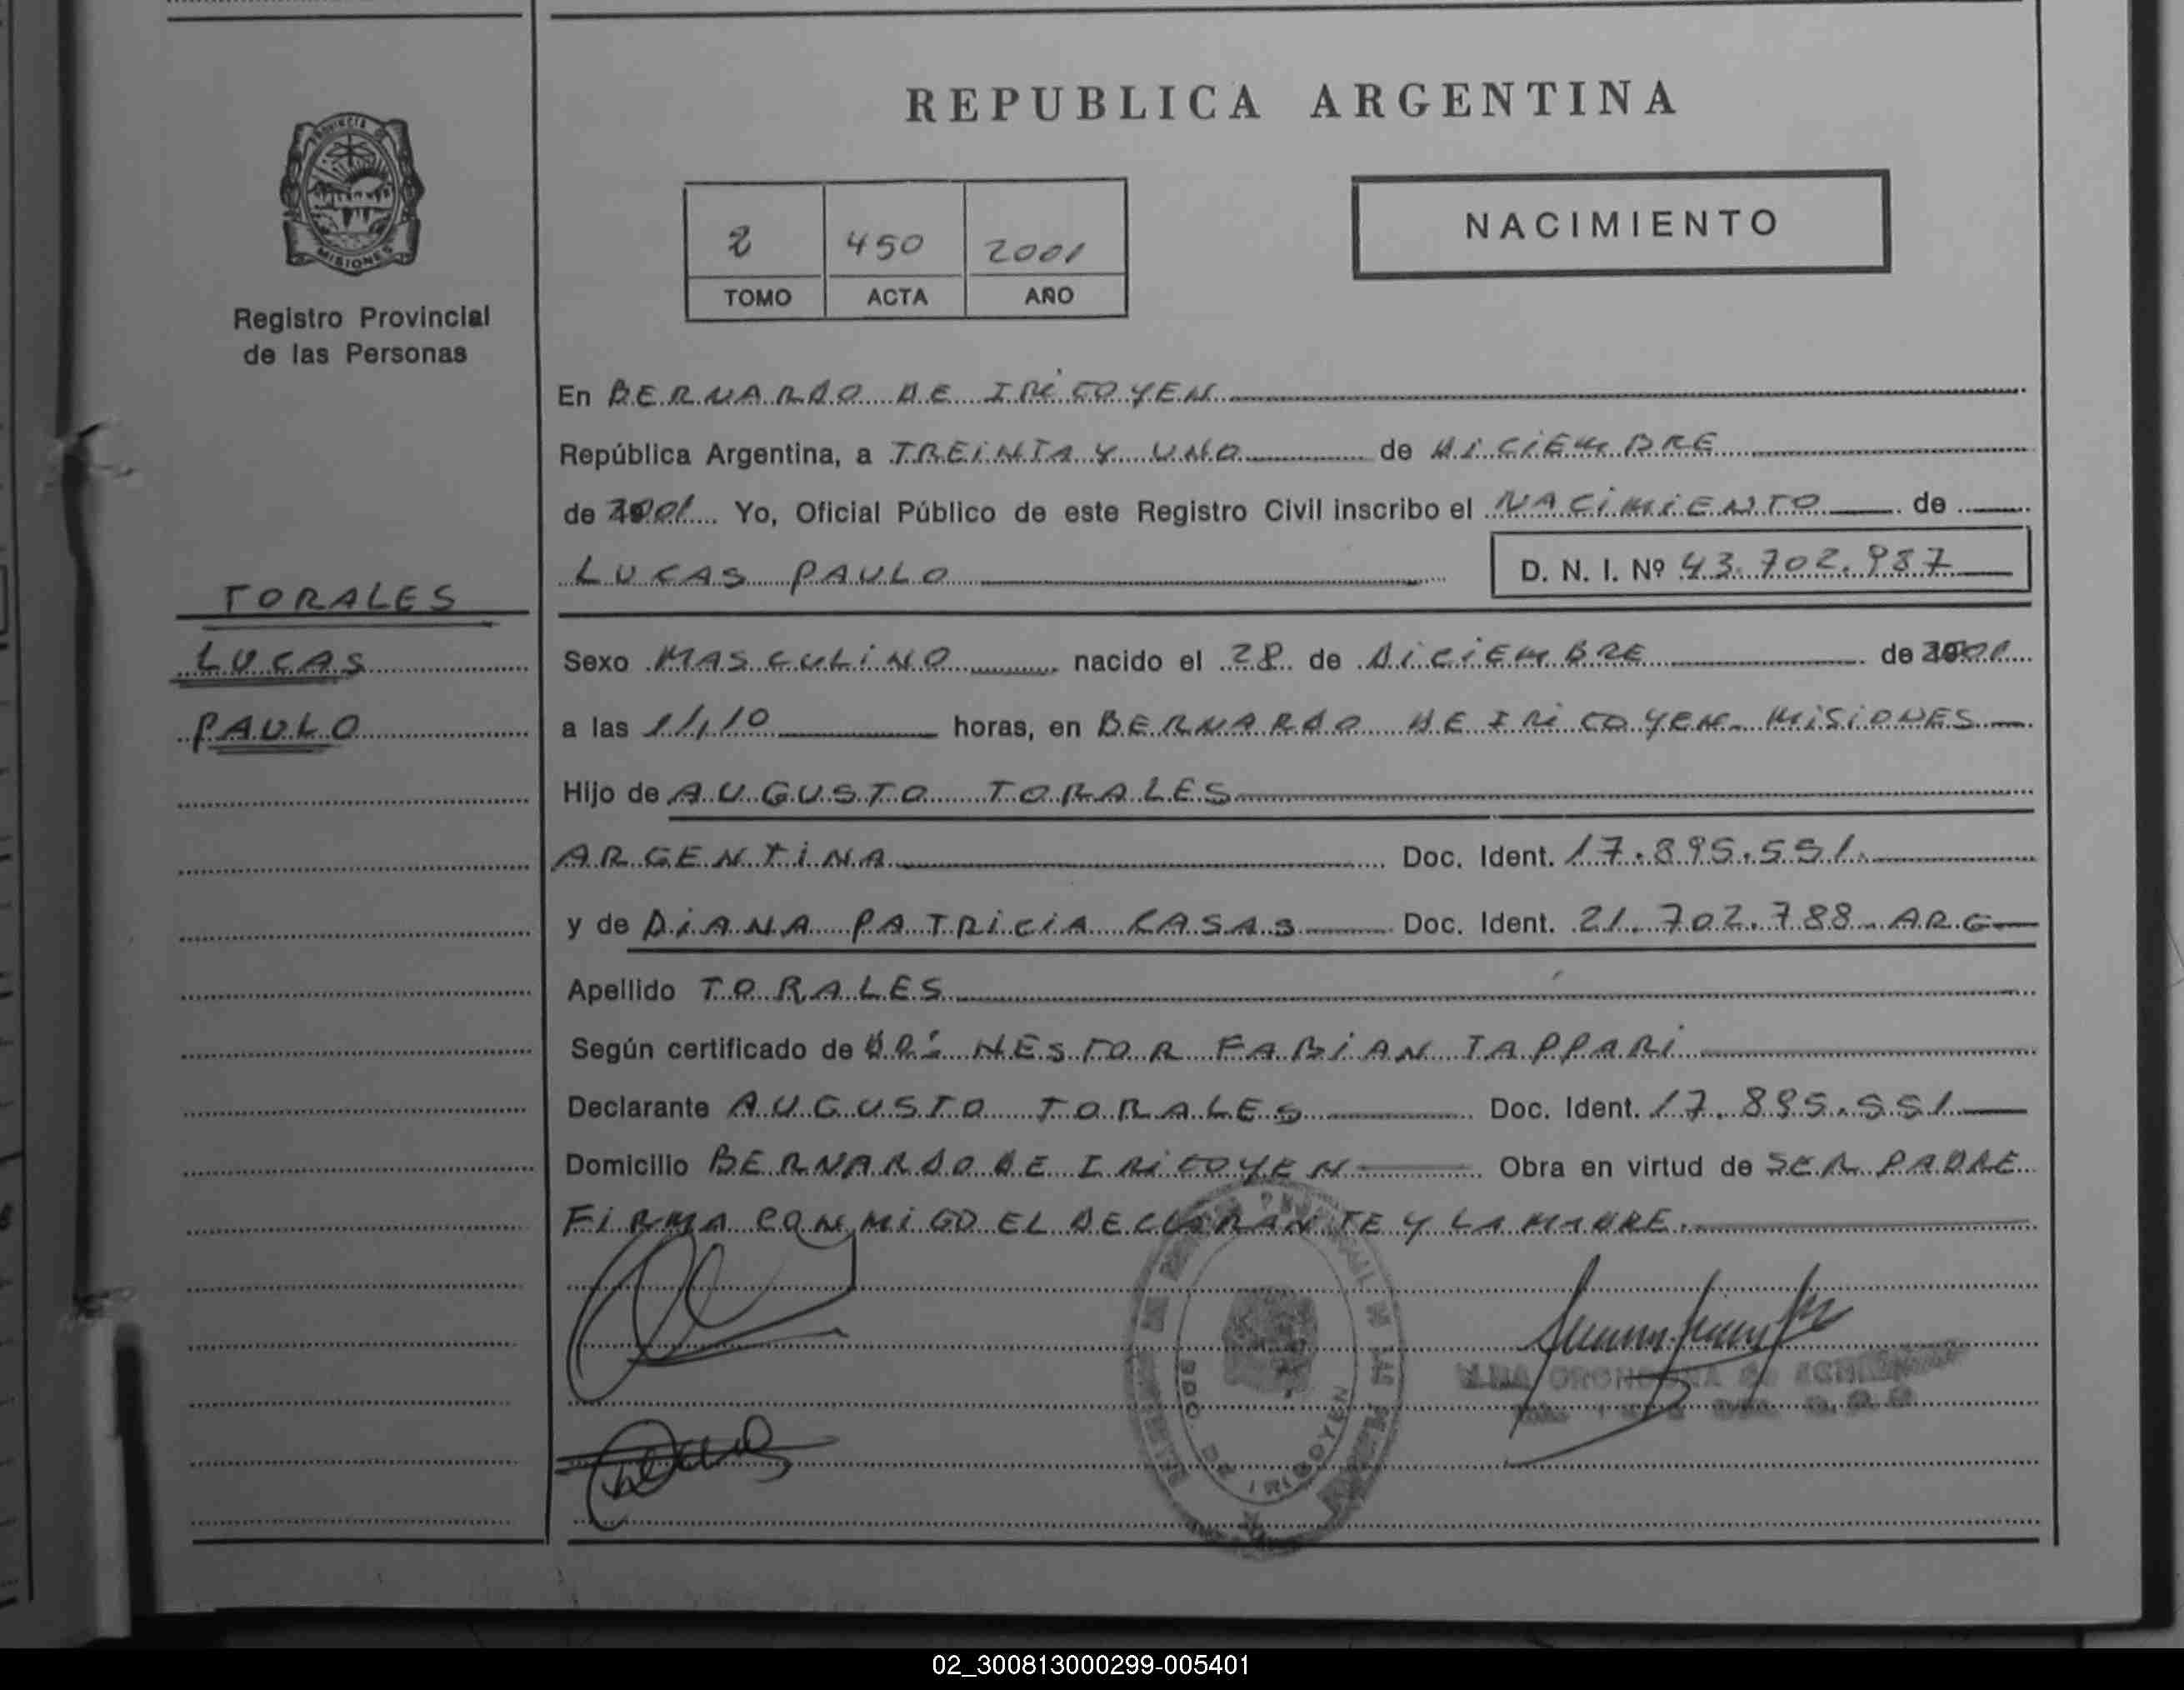 REPUBLICA ARGENTINA
PROVINCIA DE
MISIONES
Registro Provincial
de las Personas
2 450 2001
TOMO ACTA AÑO
NACIMIENTO
En BERNARDO DE IRIGOYEN
República Argentina, a TREINTA Y UNO de DICIEMBRE
de 2001 Yo, Oficial Público de este Registro Civil inscribo el NACIMIENTO de
LUCAS PAULO D. N. I. Nº 43.702.937
TORALES
LUCAS
PAULO
Sexo MASCULINO nacido el 28 de DICIEMBRE de 2001
a las 11,10 horas, en BERNARDO DE IRIGOYEN - MISIONES
Hijo de AUGUSTO TORALES
ARGENTINA Doc. Ident. 17.895.551.
y de DIANA PATRICIA CASAS Doc. Ident. 21.702.788 - ARG
Apellido TORALES
Según certificado de DR: NESTOR FABIAN TAPPARI
Declarante AUGUSTO TORALES Doc. Ident. 17.895.551
Domicilio BERNARDO DE IRIGOYEN Obra en virtud de SER PADRE
FIRMA CONMIGO EL DECLARANTE Y LA MADRE.
BDO. DE IRIGOYEN
02_300813000299-005401